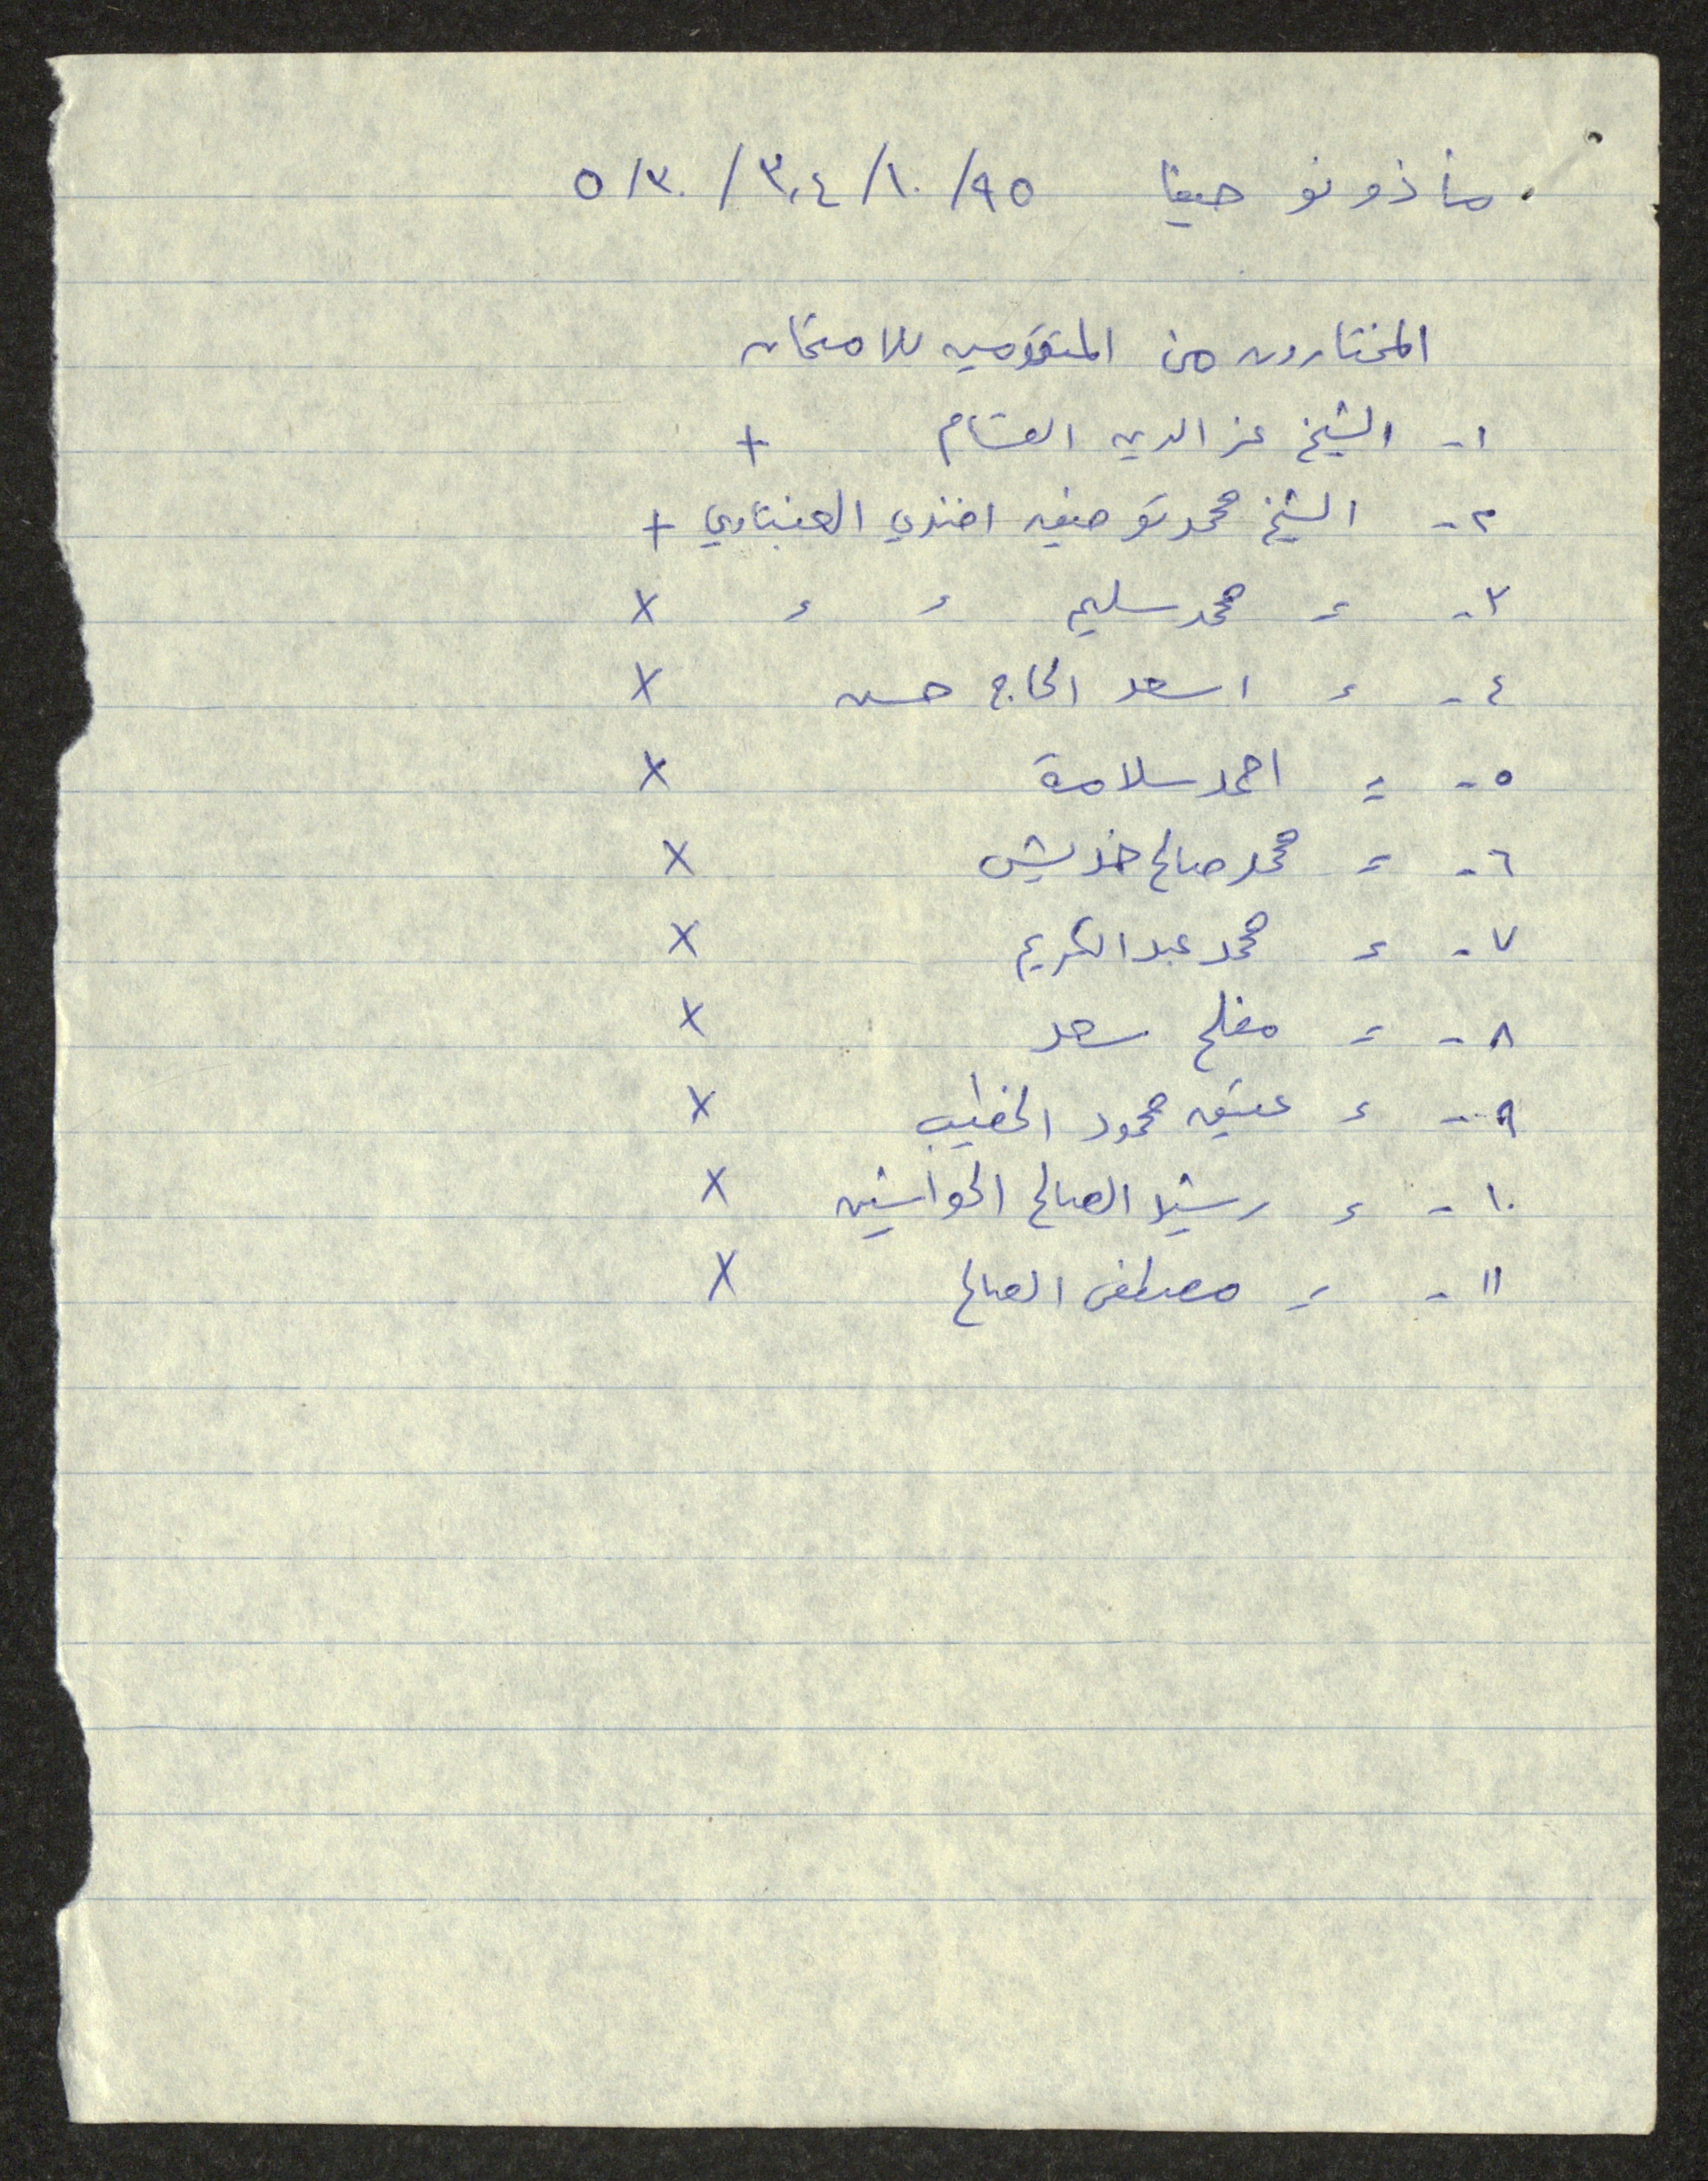 مأذونو حيفا ٩٥/١٠/٣,٤/٥/٣٠
المختارون من المتقدمين للامتحان
١- الشيخ عز الدين القسام +
٢- الشيخ محمد توفيق افندي العنبتاوي +
٣- = محمد سليم = = X
٤- = اسعد الحاج حسن X
٥- = احمد سلامة X
٦- = محمد صالح X
٧- = محمد عبد الكريم X
٨- = مفلح سعد X
٩- = محمود الخطيب X
١٠- = رشيد الصالح X
١١- = مصطفى الصالح X